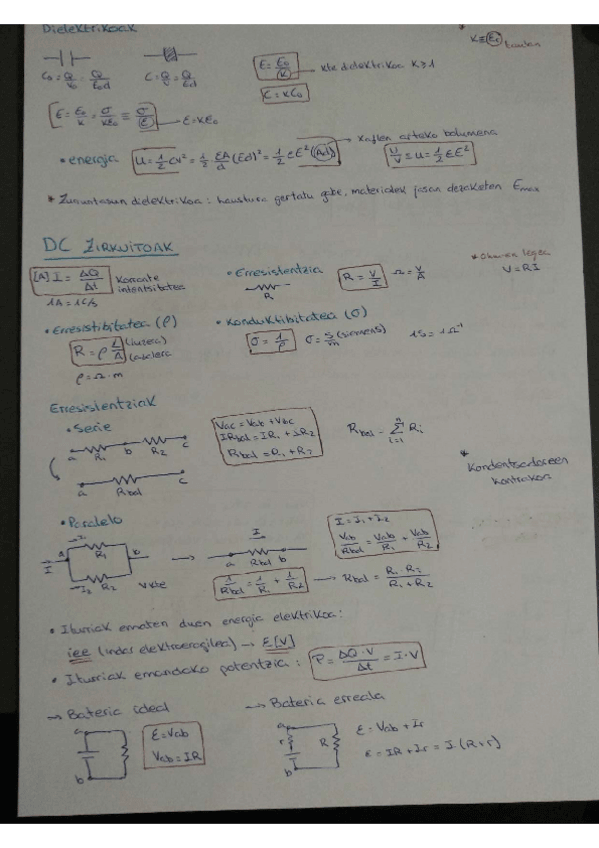 Dielektrikoak
C₀ = Q/V₀ = Q/E₀d
C = Q/V = Q/Ed
E = E₀/K
kte dielektrikoa K≥1
C = KC₀
E = E₀/K = σ/Kε₀ ≡ σ/ε
ε = Kε₀
• energia
U = 1/2 CV² = 1/2 εA/d (Ed)² = 1/2 εE² (Ad)
xaflen arteko bolumena
U/V ≡ u = 1/2 εE²
* Zurruntasun dielektrikoa: haustura gertatu gabe, materialek jasan dezaketen Emax
DC ZIRKUITOAK
[A] I = ΔQ/Δt
Korronte intentsitatea
1A = 1C/s
• Erresistentzia
R
R = V/I
Ω = V/A
* Ohm-en legea
V = RI
• Erresistibitatea (ρ)
R = ρ L/A
(luzera)
(azalera)
ρ = Ω·m
• Konduktibitatea (σ)
σ = 1/ρ
σ = S/m (siemens)
1S = 1Ω⁻¹
Erresistentziak
• Serie
a R₁ b R₂ c
a Rbal c
Vac = Vab + Vbc
IRbal = IR₁ + IR₂
Rbal = R₁ + R₂
Rbal = Σ Ri
i=1
n
* Kondentsadoreen kontrakoa
• Paralelo
I a I₁ R₁ b
I₂ R₂
V kte
I
a Rbal b
I = I₁ + I₂
Vab/Rbal = Vab/R₁ + Vab/R₂
1/Rbal = 1/R₁ + 1/R₂
Rbal = R₁·R₂/R₁+R₂
• Iturriak ematen duen energia elektrikoa:
iee (indar elektroeragilea) → ε [V]
• Iturriak emandako potentzia: P = ΔQ·V/Δt = I·V
→ Bateria ideal
a
b
ε = Vab
Vab = IR
→ Bateria erreala
a
r
R
b
ε = Vab + Ir
ε = IR + Ir = I·(R+r)